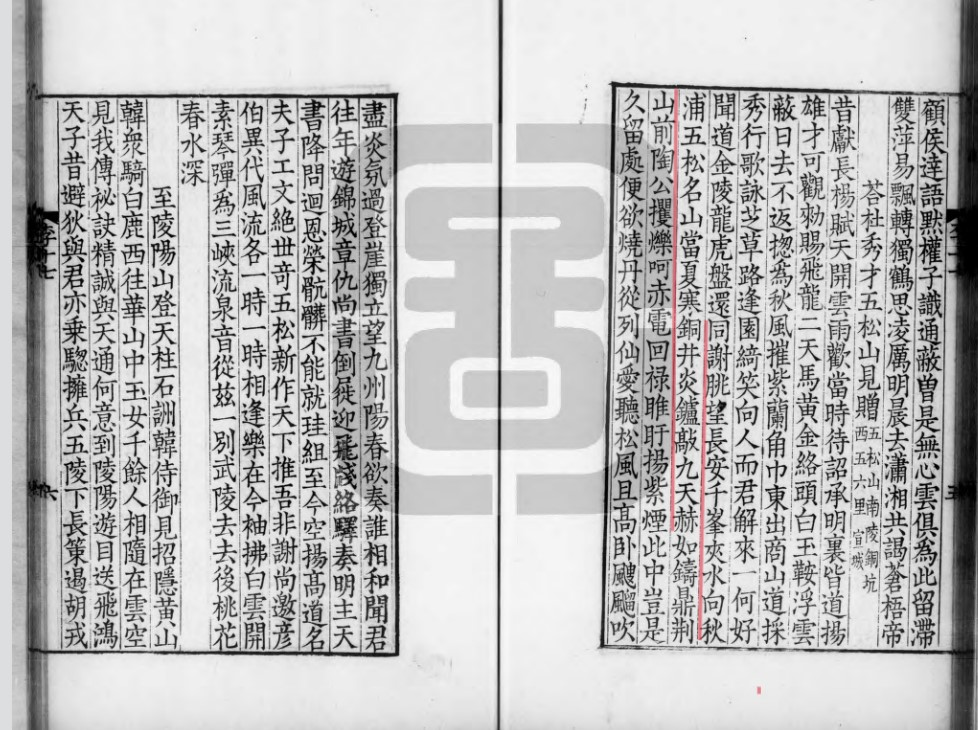 顧侯達語默權子識通蔽曽是無心雲俱為此留滯
雙萍易飄轉獨鶴思凌厲明晨去瀟湘共謁蒼梧帝
荅杜秀才五松山見贈
五松山南陵銅坑
西五六里 宣城
昔獻長楊賦天開雲雨歡當時待詔承明裏皆道揚
雄才可觀勑賜飛龍二天馬黄金絡頭白玉鞍浮雲
蔽日去不返揔為秋風摧紫蘭角巾東出商山道採
秀行歌詠芝草路逢園綺笑向人而君解來一何好
聞道金陵龍虎盤還同謝眺望長安千峯夾水向秋
浦五松名山當夏寒銅井炎鑪歊九天赫如鑄鼎荆
山前陶公攫爍呵赤電回禄睢盱揚紫煙此中豈是
久留處便欲燒丹從列仙愛聽松風且高卧颼飀吹
盡炎氛過登崖獨立望九州陽春欲奏誰相和聞君
往年遊錦城章仇尚書倒屣迎飛牋絡驛奏明主天
書降問迴恩榮骯髒不能就珪組至今空揚髙道名
夫子工文絶丗竒五松新作天下推吾非謝尚邀彦
伯異代風流各一時一時相逢樂在今袖拂白雲開
素琴彈爲三峽流泉音從兹一别武陵去去後桃花
春水深
至陵陽山登天柱石詶韓侍御見招隱黄山
韓衆騎白鹿西往華山中玉女千餘人相隨在雲空
見我傳祕訣精誠與天通何意到陵陽遊目送飛鴻
天子昔避狄與君亦乗驄擁兵五陵下長策遏胡戎